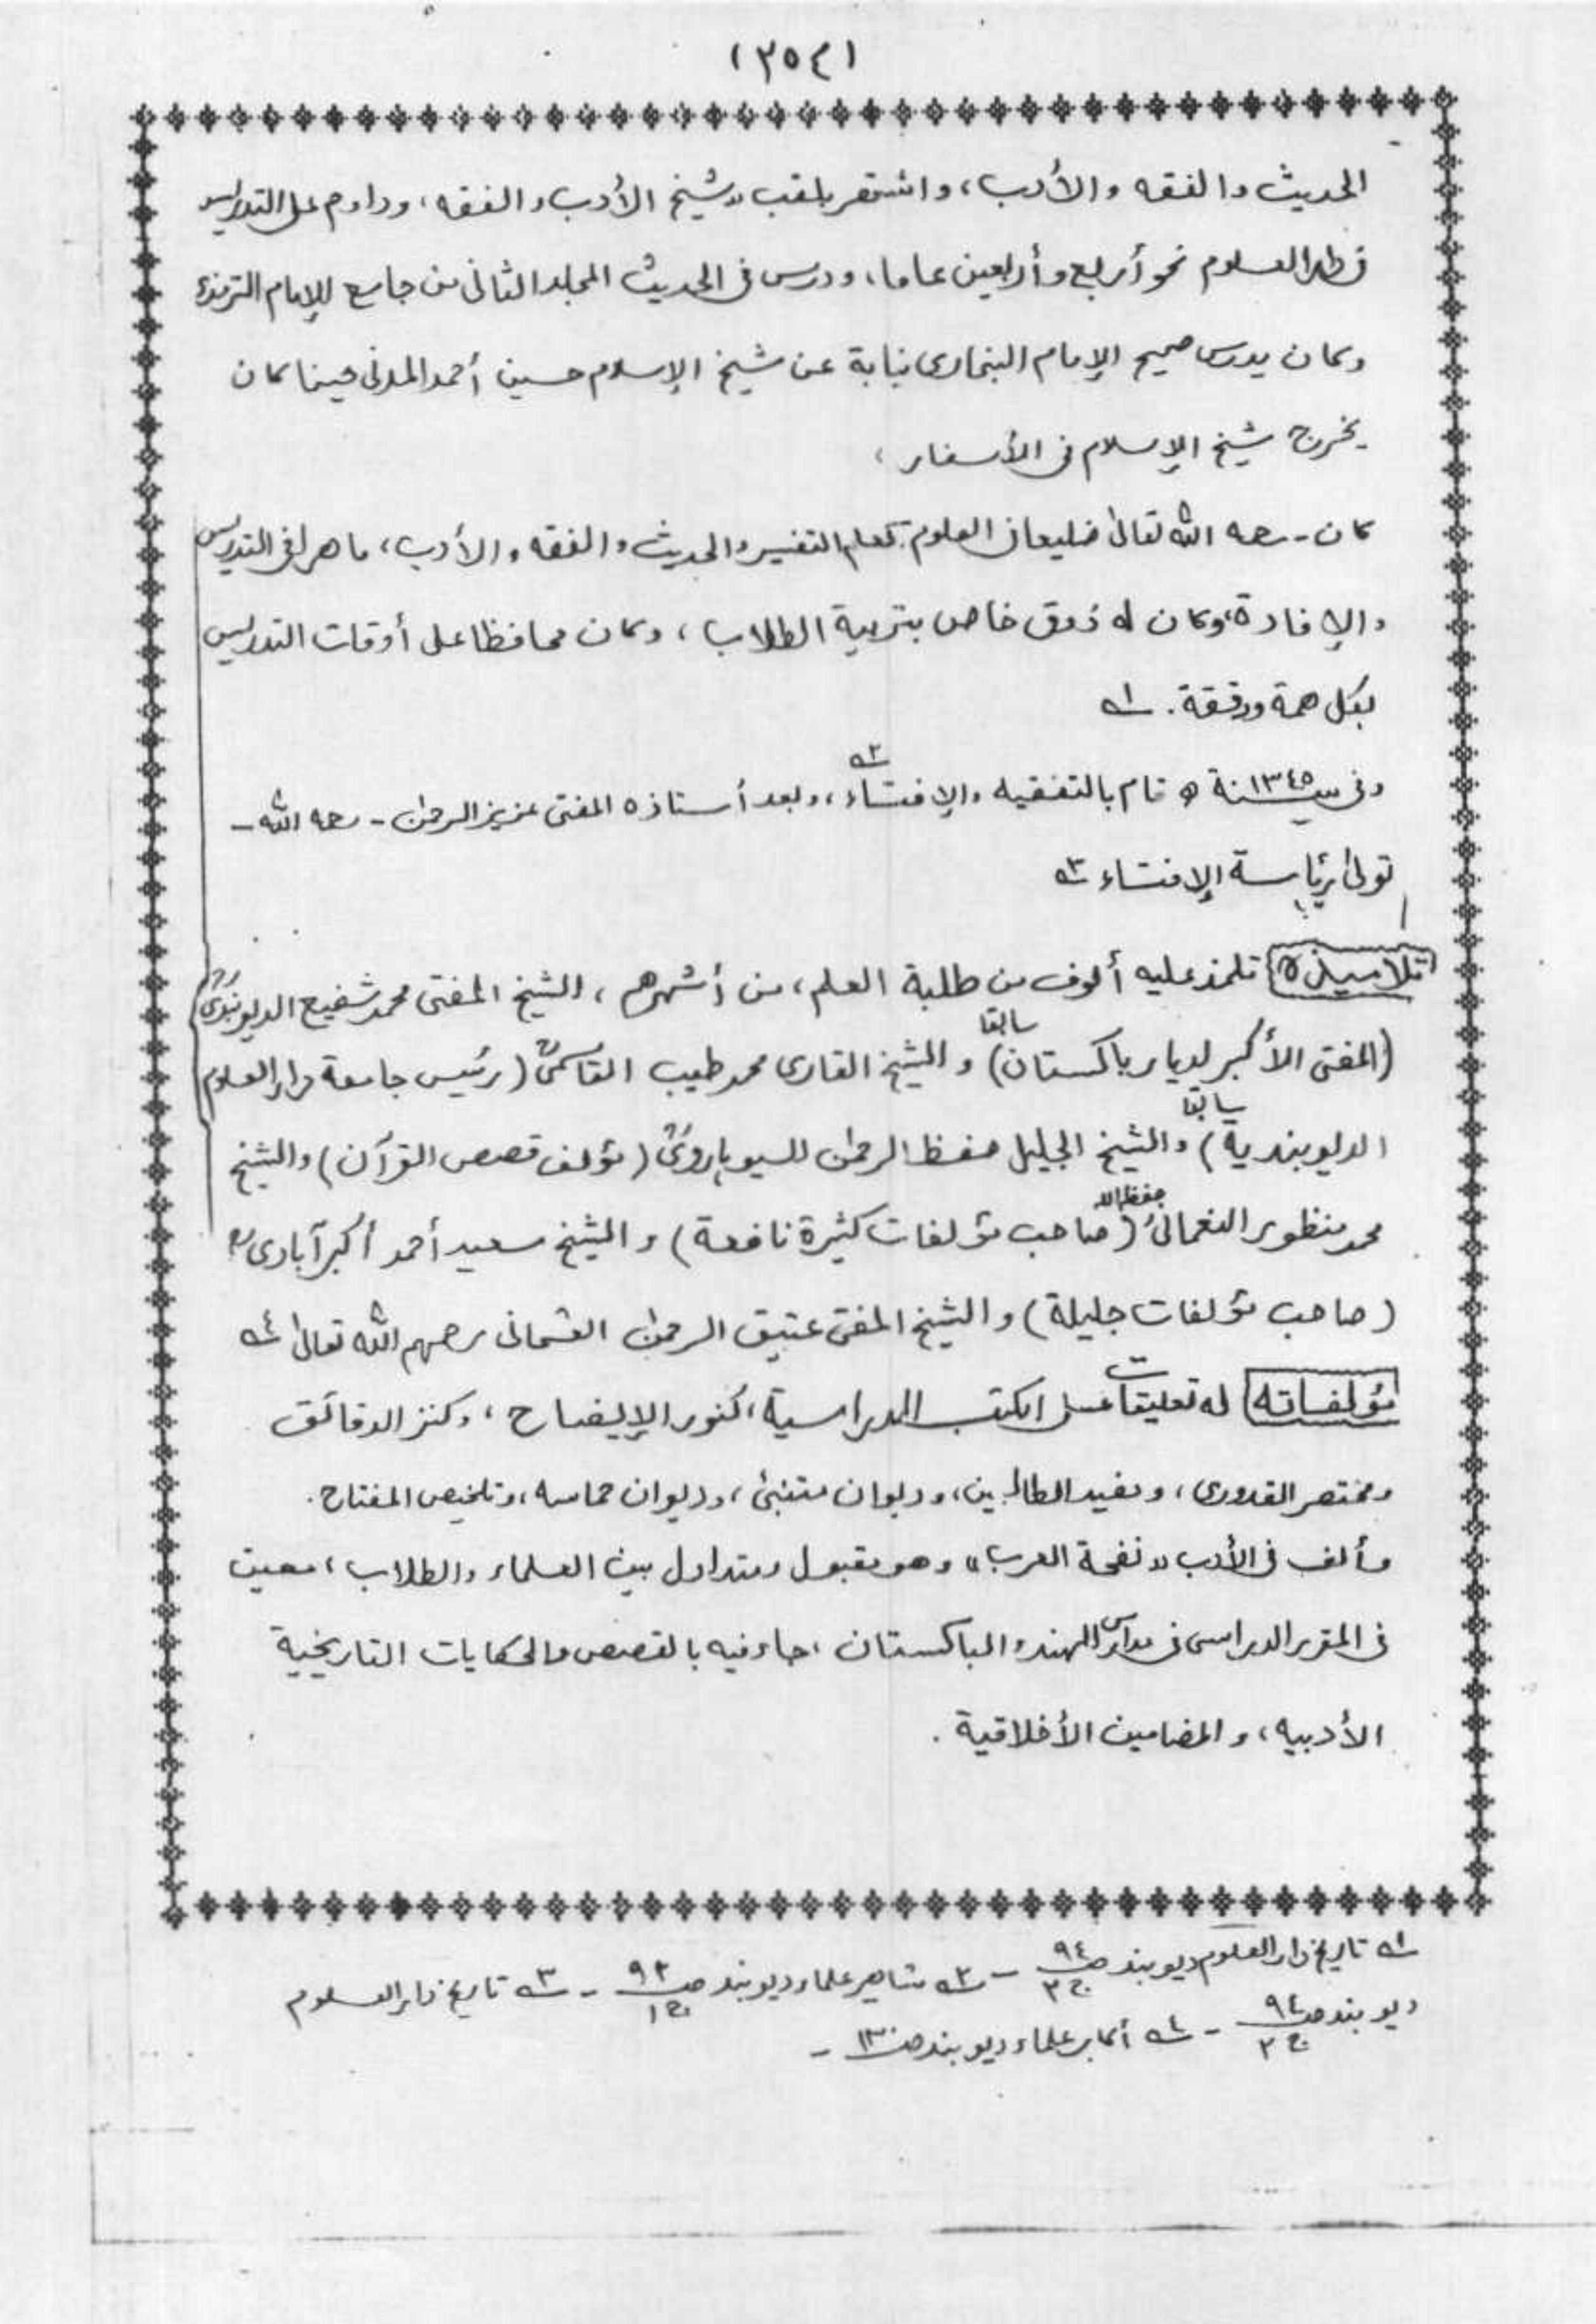 (٣٥٤)
الحديث والفقه والأدب، واشتهر بلقب «شيخ الأدب والفقه، وداوم على التدريس
فى دار العلوم نحو أربع وأربعين عاما، ودرس فى الحديث المجلد الثانى من جامع للإمام الترمذى
وكان يدرس صحيح الإمام البخارى نيابة عن شيخ الإسلام حسين أحمد المدنى حينما كان
يخرج شيخ الإسلام فى الأسفار،
كان - رحمه الله تعالى ضليعا فى العلوم كعلم التفسير والحديث والفقه والأدب، ماهرا فى التدريس
والإفادة، وكان له ذوق خاص بتربية الطلاب، وكان محافظا على أوقات التدريس
بكل همة ودقة. ١ـه
وفى سنة ١٣٤٥ ه قام بالتفقيه والإفتاء ٢ـه، وبعد أستاذه المفتى عزيز الرحمن - رحمه الله -
تولى رئاسة الإفتاء ٣ـه
تلاميذه تلمذ عليه ألوف من طلبة العلم، من أشهرهم، الشيخ المفتى محمد شفيع الديوبندىؒ
(المفتى الأكبر لديار باكستان سابقا) والشيخ القارى محمد طيب القاسمىؒ (رئيس جامعة دار العلوم
الديوبندية سابقا) والشيخ الجليل حفظ الرحمن السيوهاروىؒ (مؤلف قصص القرآن) والشيخ
محمد منظور النعمانى حفظه الله (صاحب مؤلفات كثيرة نافعة) والشيخ سعيد أحمد أكبر آبادىؒ
(صاحب مؤلفات جليلة) والشيخ المفتى عتيق الرحمن العثمانى رحمهم الله تعالى ٤ـه
مؤلفاته له تعليقات على الكتب الدراسية، كنور الإيضاح، وكنز الدقائق
ومختصر القدورى، ومفيد الطالبين، وديوان متنبئ، وديوان حماسه، وتلخيص المفتاح.
وألف فى الأدب «نفحة العرب» وهو مقبول ومتداول بين العلماء والطلاب، معين
فى المقرر الدراسى فى مدارس الهند والباكستان، جاء فيه بالقصص والحكايات التاريخية
الأدبيه، والمضامين الأخلاقية.
١ـه تاريخ دار العلوم ديوبند صـ ٩٤ ج ٢ - ٢ـه مشاهير علماء ديوبند صـ ٩٢ ج ١ - ٣ـه تاريخ دار العلوم
ديوبند صـ ٩٤ ج ٢ - ٤ـه أكابر علماء ديوبند صـ ١٣٠ -